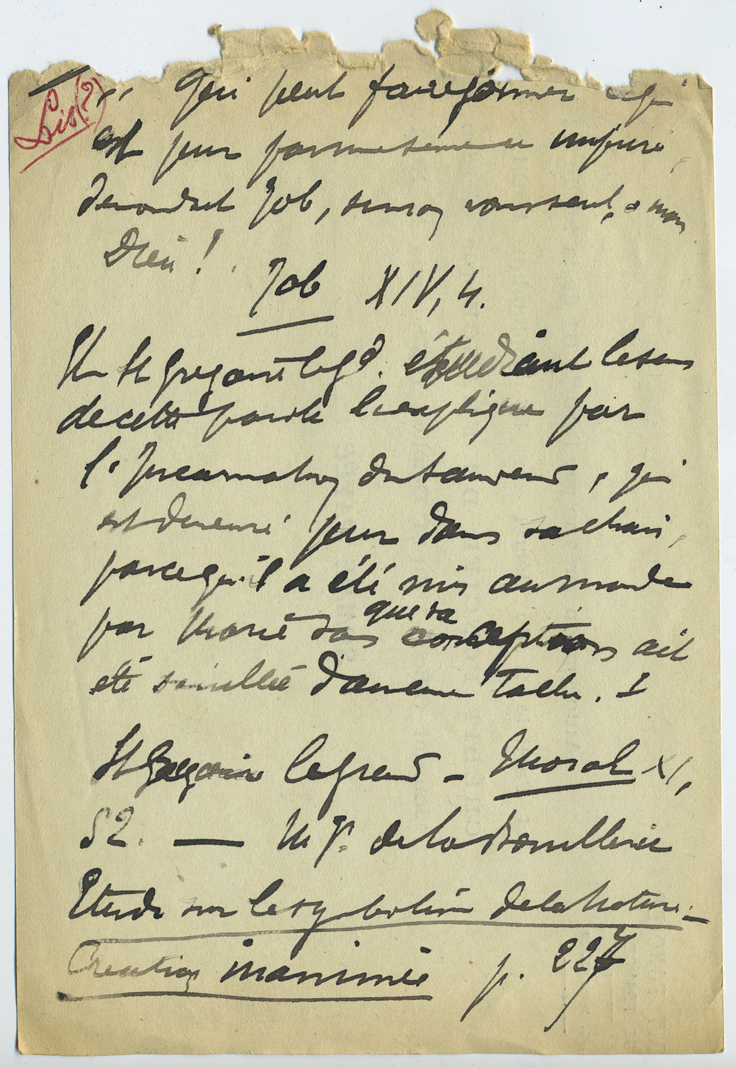 Lis (?)
" Qui peut faire germer ce qui
est pur
demandait Job, sinon vous seul, ô mon
Dieu !
Job XIV, 4.
St Grégoire le gd. étudiant le sens
de cette parole l'explique par
l'Incarnation du Sauveur, qui
est demeuré pur dans sa chair,
parce qu'il a été mis au monde
par Marie sans que sa conception ait
été souillée d'aucune tache.
St Grégoire le grand - Moral XI,
52. — Mgr de la Bouillerie
Etude sur le symbolisme de la Nature -
Création inanimée p. 227